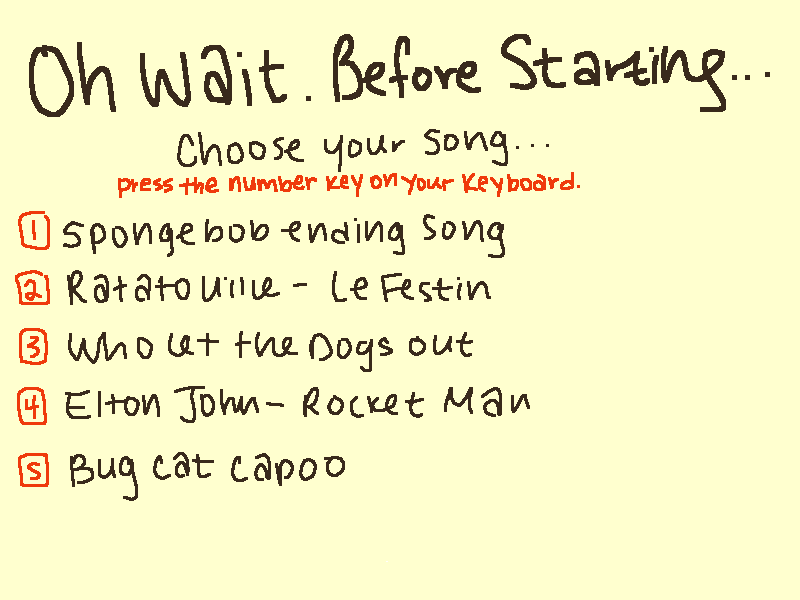 Oh Wait. Before Starting...
Choose your song...
press the number key on your keyboard.
1 Spongebob ending song
2 Ratatouille - Le Festin
3 Who let the Dogs out
4 Elton John - Rocket Man
5 Bug cat capoo